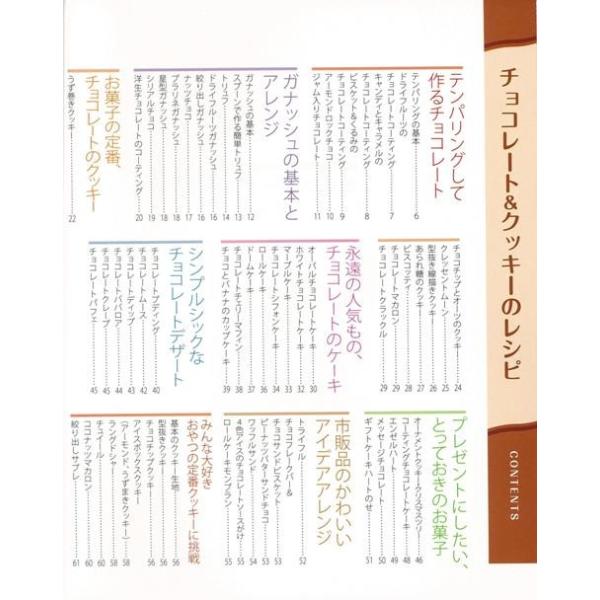 チョコレート&クッキーのレシピ
CONTENTS
テンパリングして
作るチョコレート
テンパリングの基本……6
ドライフルーツの
チョコレートコーティング……7
キャンディとキャラメルの
チョコレートコーティング……8
ビスケット&くるみの
チョコレートコーティング……9
アーモンドロックチョコ……10
ジャム入りチョコレート……11
ガナッシュの基本と
アレンジ
ガナッシュの基本……12
スプーンで作る簡単トリュフ……13
トリュフ……14
ドライフルーツガナッシュ……16
絞り出しガナッシュ……16
ナッツチョコ……17
プラリネガナッシュ……18
星型ガナッシュ……18
シリアルチョコ……19
洋生チョコレートのコーティング……20
お菓子の定番、
チョコレートのクッキー
うず巻きクッキー……22
チョコチップとオーツのクッキー……24
クレッセントムーン……25
型抜き線描きクッキー……26
あられ糖のクッキー……27
ビスコッティ……28
チョコレートマカロン……29
チョコレートクラックル……29
永遠の人気もの、
チョコレートのケーキ
オーバルチョコレートケーキ……30
ホワイトチョコレートケーキ……32
マーブルケーキ……33
チョコレートシフォンケーキ……34
ロールケーキ……36
ドームケーキ……37
チョコレートチェリーマフィン……38
チョコとバナナのカップケーキ……39
シンプルシックな
チョコレートデザート
チョコレートプディング……40
チョコレートムース……42
チョコレートディップ……43
チョコレートババロア……44
チョコレートクレープ……45
チョコレートパフェ……45
プレゼントにしたい、
とっておきのお菓子
オーナメントクッキークリスマスツリー……46
コーティングチョコレートケーキ……48
エンゼルハート……49
メッセージチョコレート……50
ギフトケーキハートのせ……51
市販品のかわいい
アイデアアレンジ
トライフル……52
チョコフレークバー&
チョコサンドビスケット……53
ピーナッツバターサンドチョコ……53
ワッフルサンド……54
4色アイスのチョコレートソースがけ……55
ロールケーキモンブラン……55
みんな大好き
おやつの定番クッキーに挑戦
基本のクッキー生地……56
型抜きクッキー……56
チョコチップクッキー……56
アイスボックスクッキー
(アーモンド、うずまきクッキー)……58
ラングドシャ……58
チュイール……60
ココナッツマカロン……60
絞り出しサブレ……61